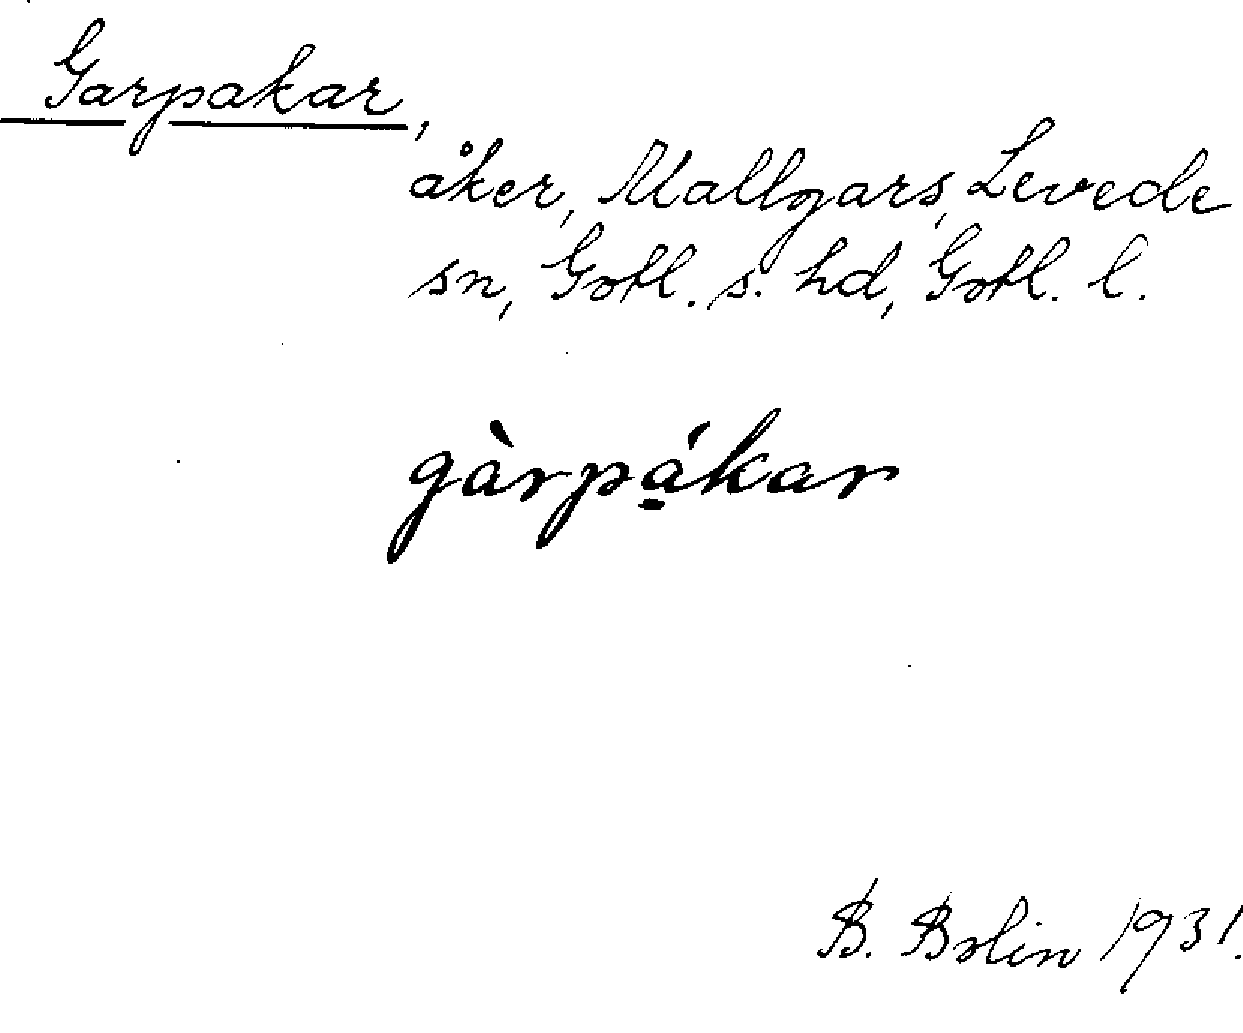 Garpakar,
åker, Mallgars, Levede
sn, Gotl. s. hd, Gotl. l.
gàrpá̱kar
B. Bolin 1931.